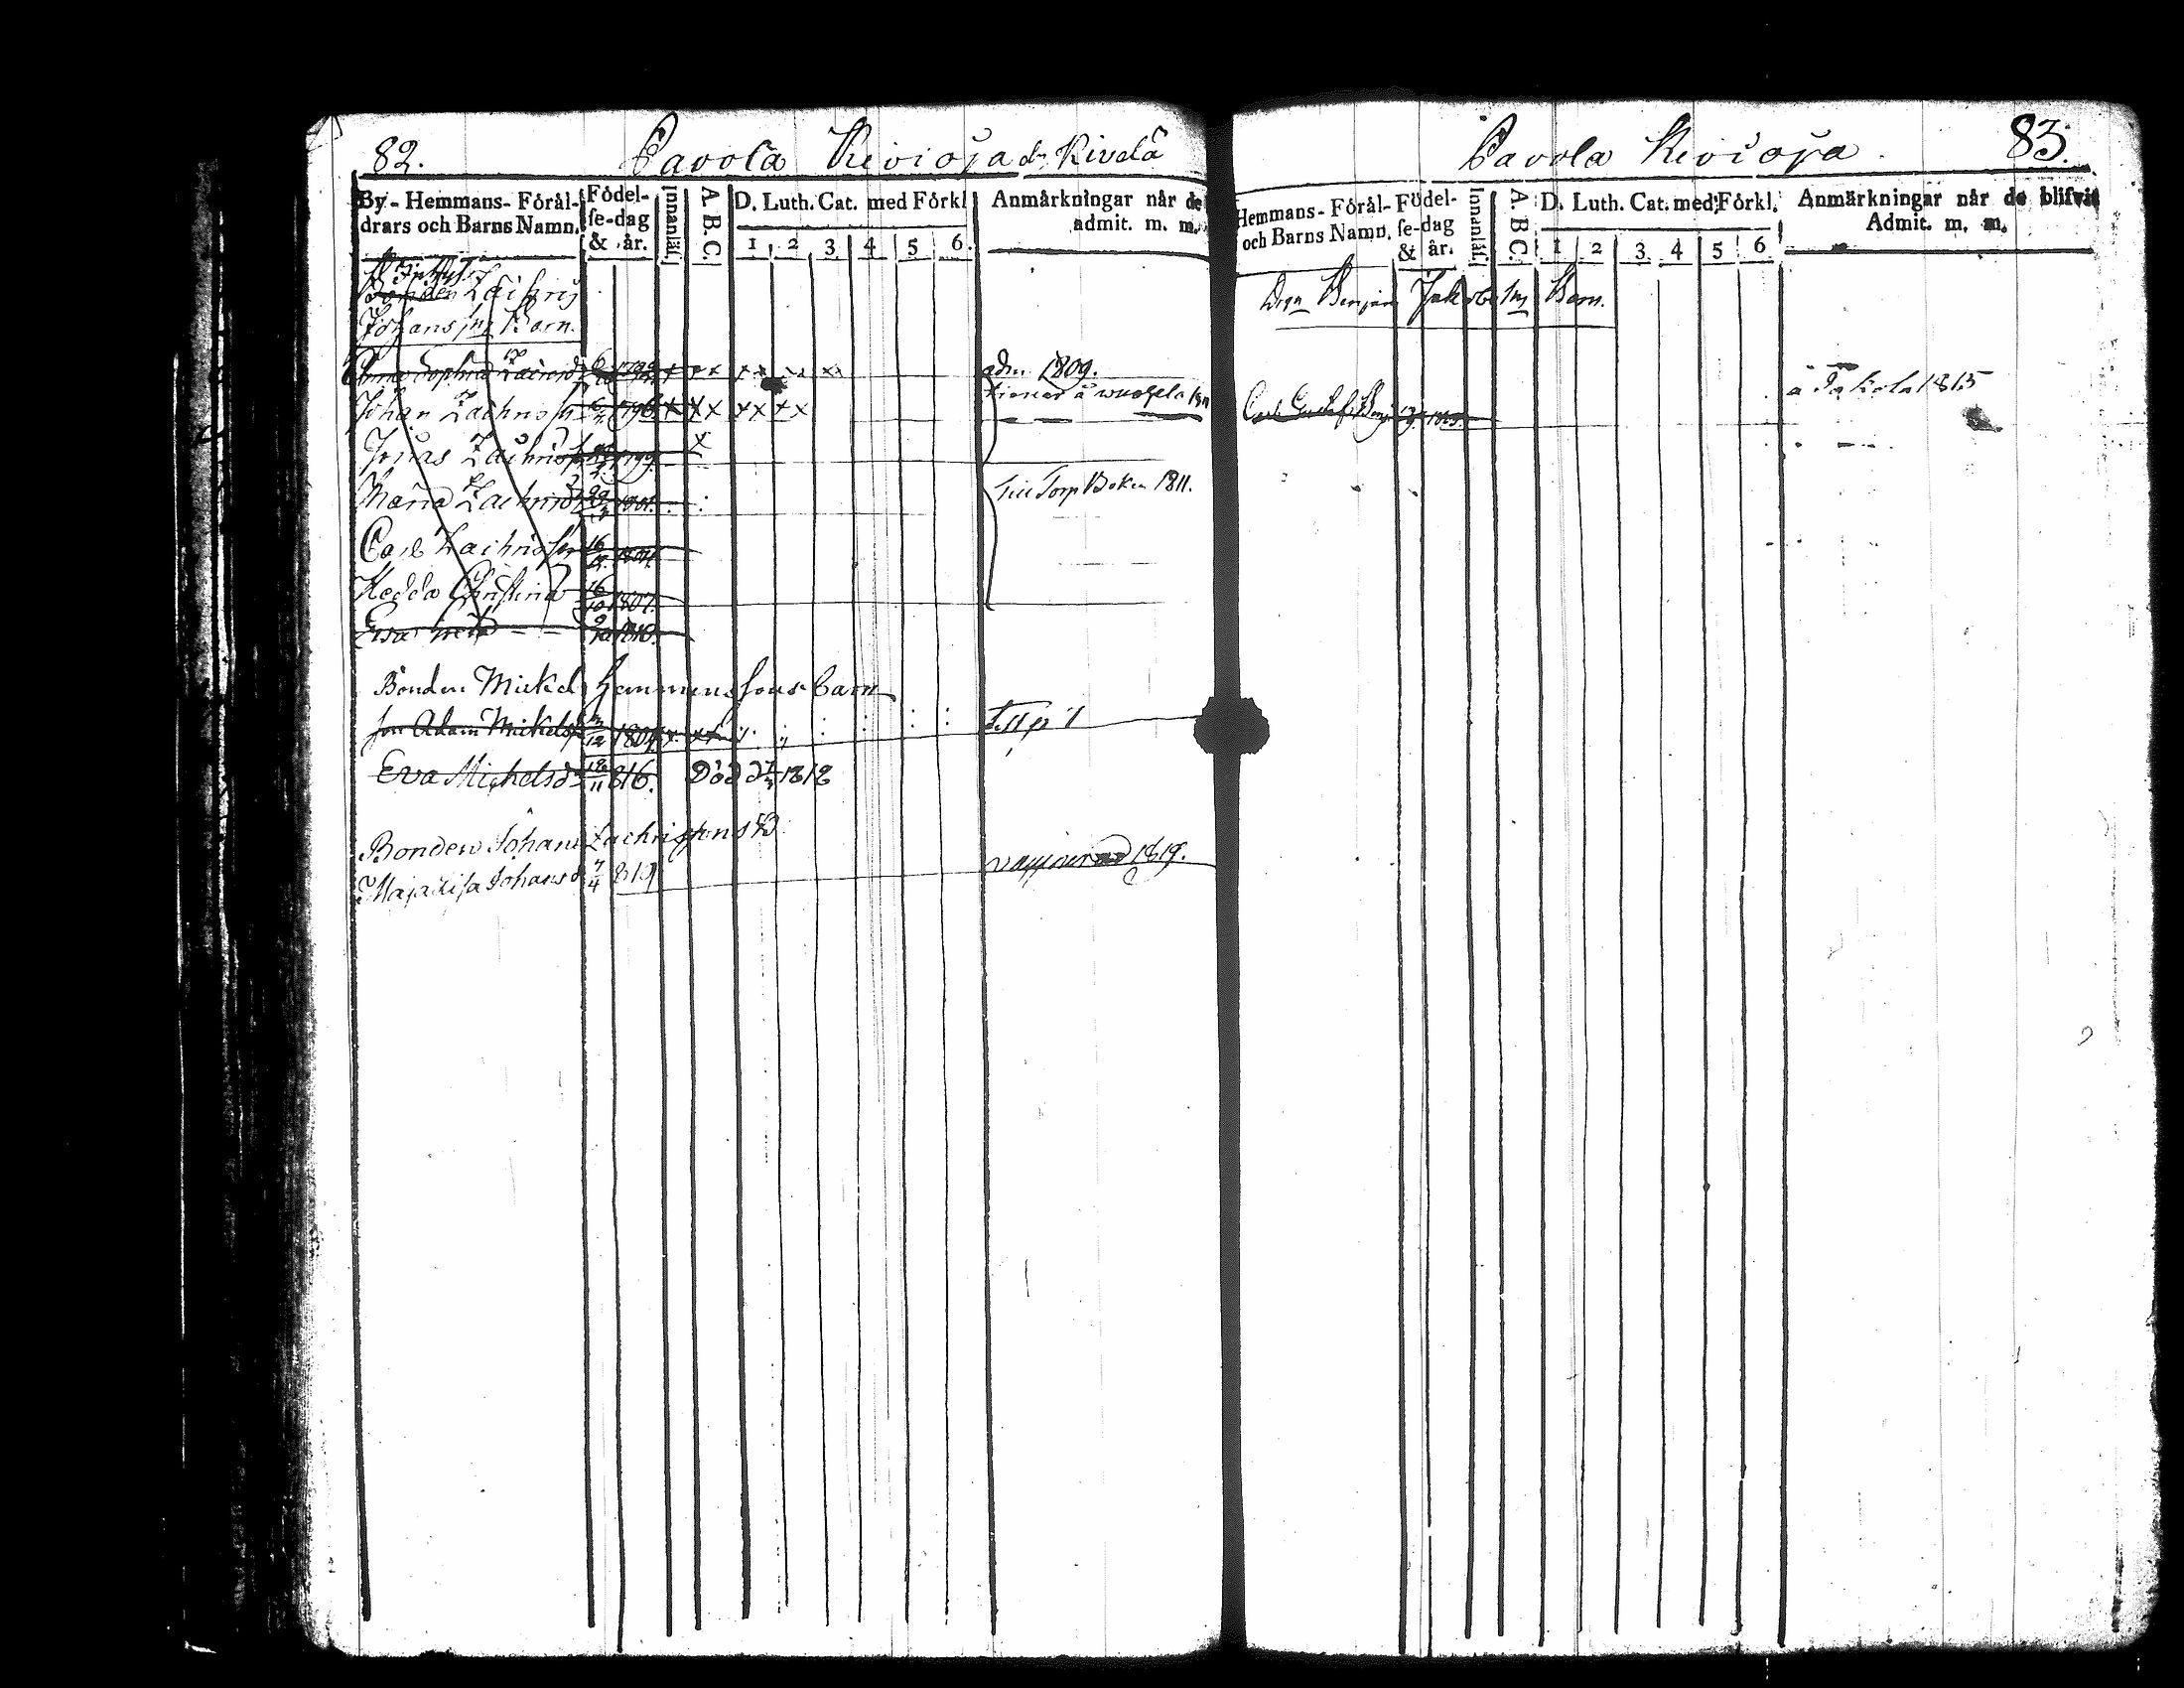 82.
Pavola Kevioja & Kivelä
By- Hemmans- Förål-
drars och Barns Namn.
Födel-
se-dag
& år.
Innanläs.
A. B. C.
D. Luth. Cat. med Förkl.
1 2 3 4 5 6.
Anmärkningar när de
admit. m. m.
Bonden Zachris
Johans sns Barn.
Anna Sophia x x x x x x adm. 1809.
Johan Zachriss 1796 x x x x x x x tienar å
Jonas Zachriss 1799 x
Maria Zachrisd 29 1801. till Torp Boken 1811.
Carl Zachriss 16 1804.
Hedda Christina 16/10 1807.
Eva 9/10 1810.
Bonden Mickel Hemmingsons barn
son Adam Mickels 12 1804 x
Eva Michelsd 18/11 816. Död 1818
Bonden Johan Zachrissons B.
Maja Lisa Johansd 7/4 819 vaccinerad 1819.
Pavola Kevioja.
83.
Hemmans- Förål-
och Barns Namn.
Födel-
se-dag
& år.
Innanläs.
A. B. C.
D. Luth. Cat. med Förkl.
1 2 3 4 5 6
Anmärkningar når de blifvit
Admit. m. m.
Drgn Benjam Jakobs sns Barn.
Carl Gustaf Benj å Jakola 1815